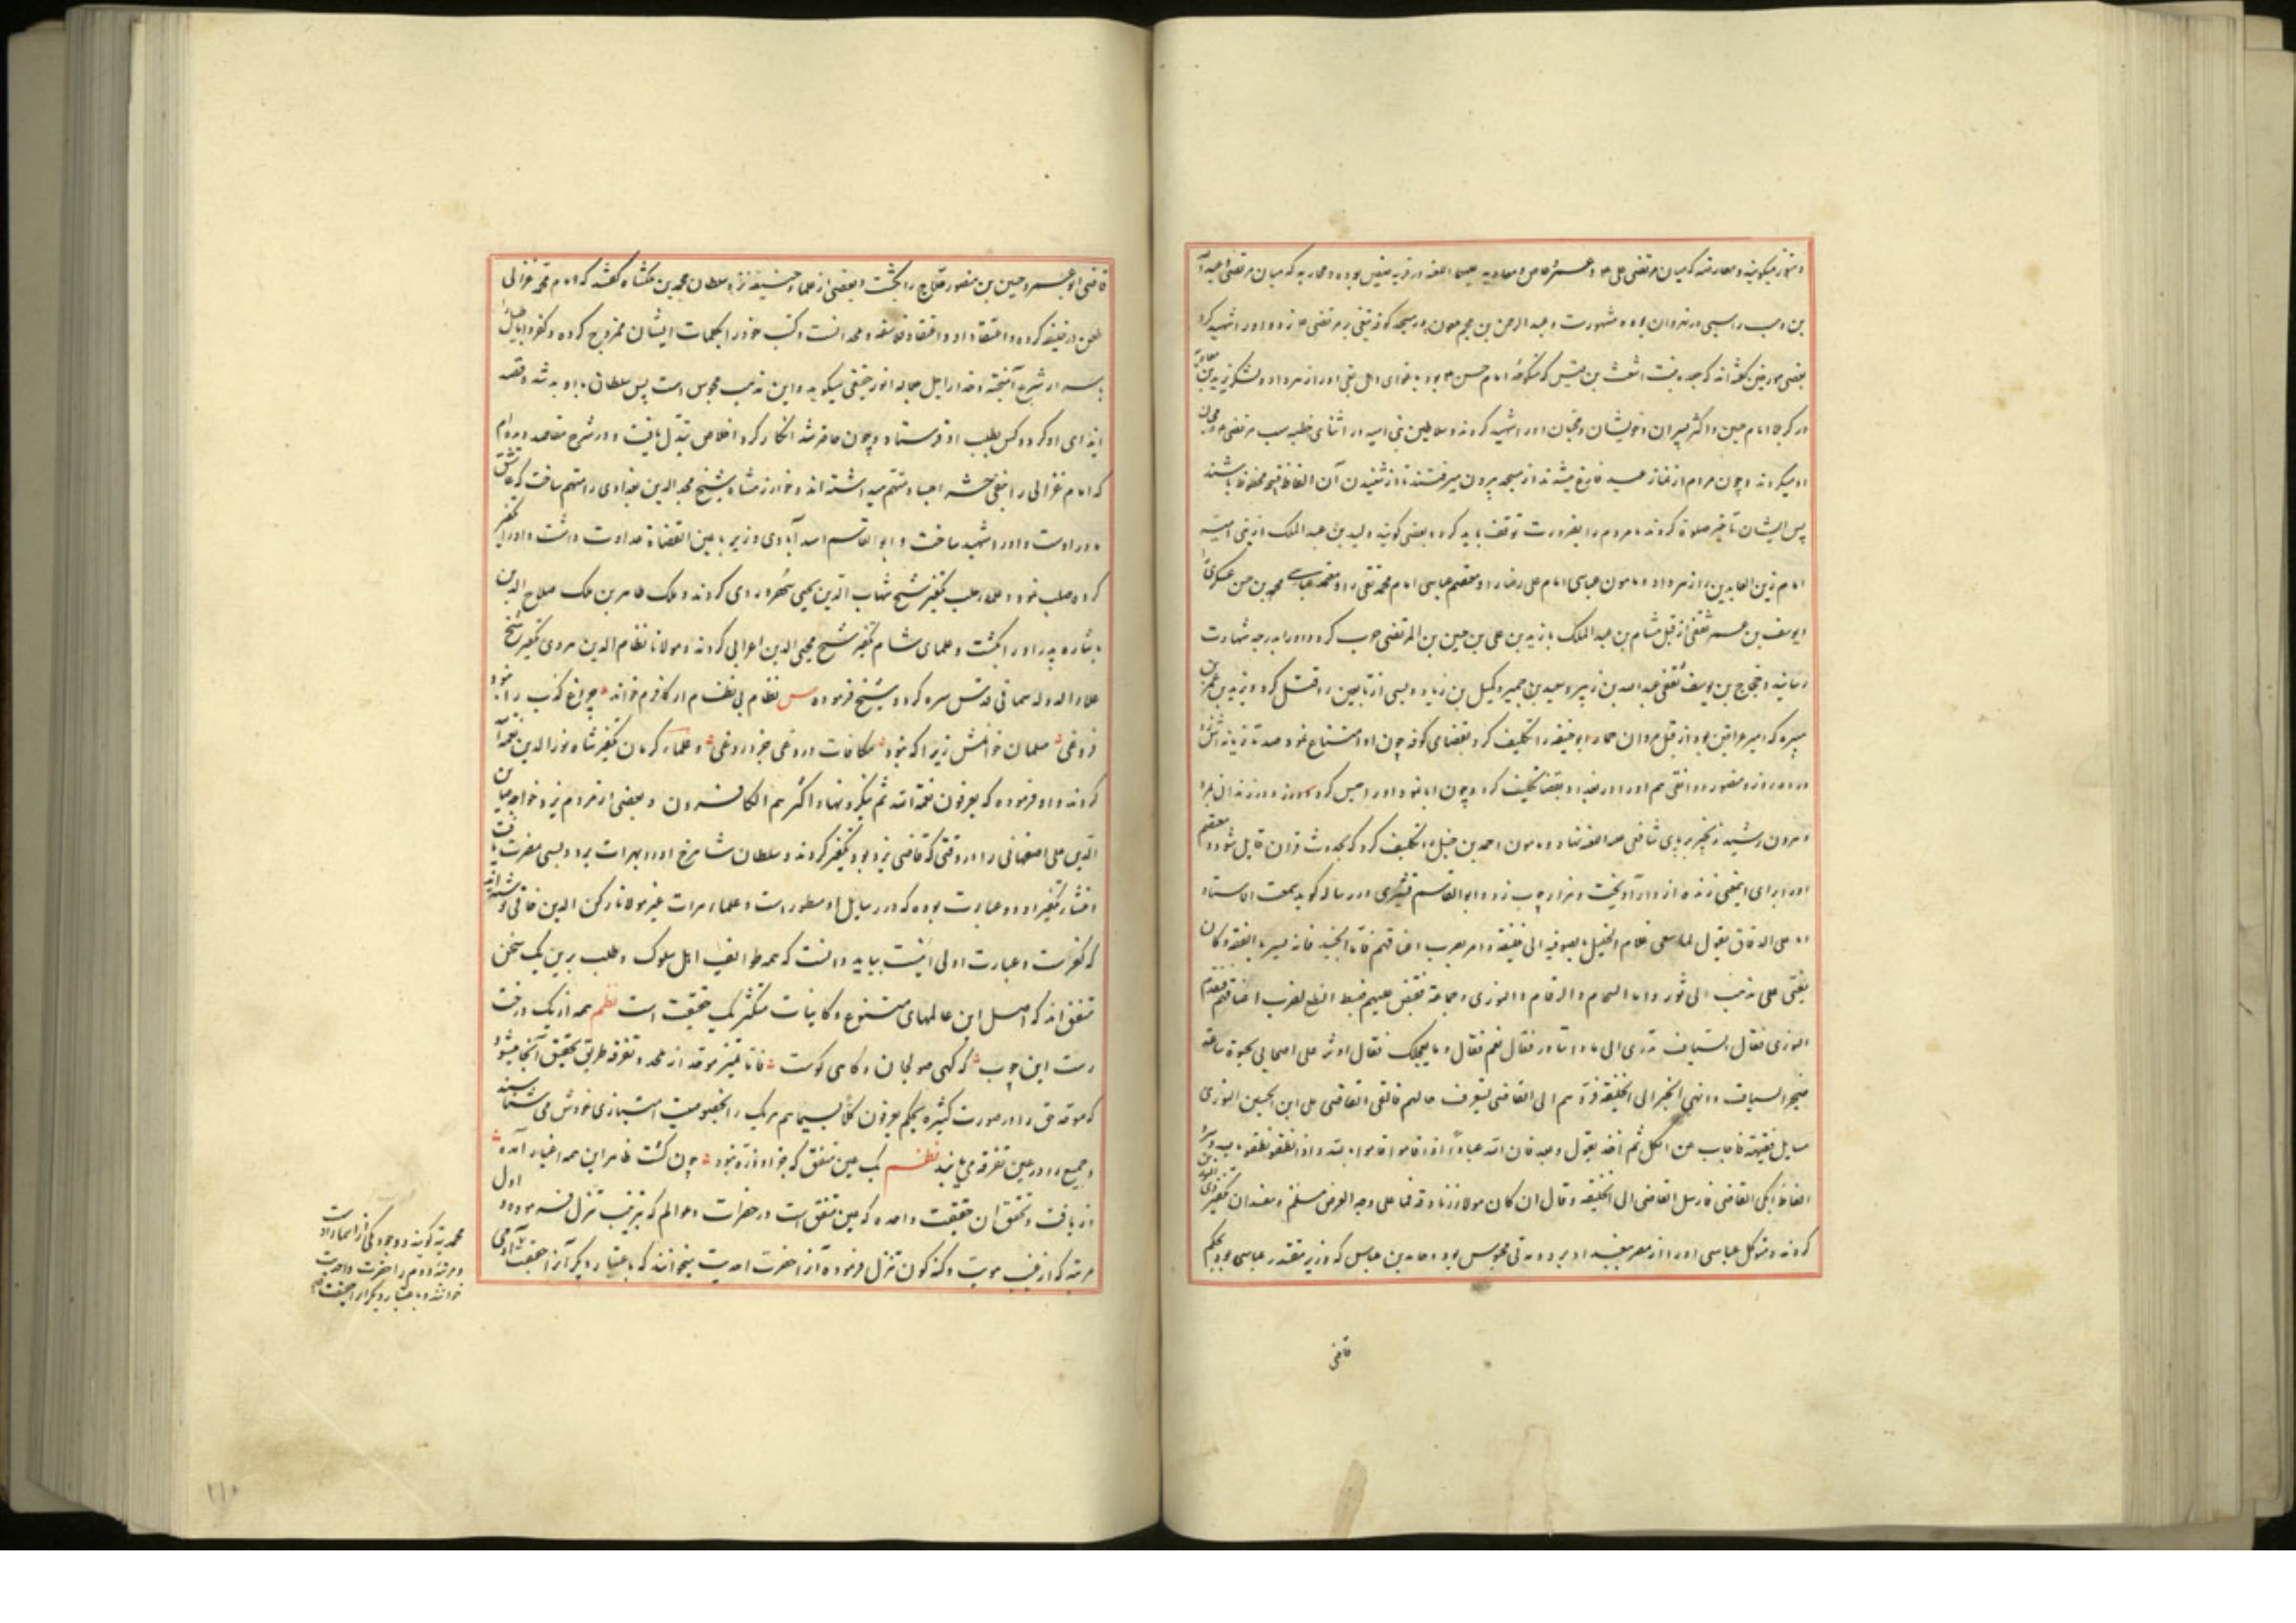 و هنوز میکویند و معارضه که میان مرتضی علی و عمرو عاص و معاویه علیهما اللعنه در قریه صفین بوده و محاربه که میان مرتضی و عبدالله
بن وهب راسبی در نهروان بوده مشهورست و عبدالرحمن بن ملجم ملعون در مسجد کوفه تیغی بر مرتضی زد و او را شهید کرد
بعضی مورخین کفته اند که جعده بنت اشعث بن قیس که منکوحه امام حسن بود باغوای اهل بغی او را زهر داد و لشکر یزید بن معاویه
در کربلا امام حسین و اکثر پسران و خویشان و محبان او را شهید کردند و سلاطین بنی امیه در اثنای خطبه سب مرتضی و محبان
او میکردند و چون مردم از نماز عید فارغ میشدند از مسجد بیرون میرفتند تا از شنیدن آن الفاظ قبیح محفوظ باشند
پس ایشان تاخیر صلوة کردند تا مردم را بضرورت توقف باید کرد و بعضی کویند ولید بن عبد الملک از بنی امیه
امام زین العابدین را زهر داد و مامون عباسی امام علی رضا را و معتصم عباسی امام محمد تقی را و معتمد عباسی محمد بن حسن عسکری را
و یوسف بن عمر ثقفی از قبل هشام بن عبد الملک با زید بن علی بن حسین بن المرتضی حرب کرد و او را بدرجه شهادت
رسانید و حجاج بن یوسف ثقفی عبد الله بن زبیر و سعید بن جبیر و کمیل بن زیاد و بسی از تابعین را قتل کرد و یزید بن عمر بن
هبیره که امیر عراقین بود از قبل مروان حمار ابو حنیفه را تکلیف کرد بقضای کوفه چون او امتناع نمود صد تازیانه اش زد
در ده روز و منصور دوانقی هم او را در بغداد بقضا تکلیف کرد و چون ابا نمود او را حبس کرد و در زندان بمرد
و هرون رشید زنجیر بر پای شافعی نهاد و مامون احمد بن حنبل را تکلیف کرد که بحدوث قران قایل شود و معتصم
او را برای اینمعنی زنده از دار آویخت و هزار چوب زد و ابو القاسم قشیری در رساله کوید سمعت الاستاد
ابا علی الدقاق یقول لما سعی غلام الخلیل بالصوفیه الی الخلیفة و امر بضرب اعناقهم فاما الجنید فانه تستر بالفقه و کان
یفتی علی مذهب ابی ثور و اما الشحام و الرقام و النوری و جماعة فقبض علیهم فبسط النطع لضرب اعناقهم فتقدم
النوری فقال السیاف تدری الی ما ذا تبادر فقال نعم فقال و ما یعجلک فقال اوثر علی اصحابی بحیوة ساعة
فتحیر السیاف و انهی الخبر الی الخلیفة فردهم الی القاضی لیتعرف حالهم فالقی القاضی علی ابی الحسین النوری
مسایل فقهیه فاجاب عن الکل ثم اخذ یقول و بعد فان لله عبادا اذا قاموا قاموا بالله و اذا نطقوا نطقوا بالله و سرد
الفاظا ابکی القاضی فارسل القاضی الی الخلیفة و قال ان کان هولاء زنادقة فما علی وجه الارض مسلم و مفسدان تکفیر ذی النون
کردند و متوکل عباسی او را از مصر ببغداد برد و مدتی محبوس بود و حامد بن عباس که وزیر مقتدر عباسی بود بحکم
قاضی
قاضی ابو عمرو حسین بن منصور حلاج را بکشت و بعضی از علماء حنیفه نزد سلطان محمد بن ملکشاه کفتند که امام محمد غزالی
طعن در حنیفه کرده و اعتقاد او اعتقاد فلاسفه و ملحدانست و کتب خود را بکلمات ایشان ممزوج کرده و کفر و اباطیل را
باسرار شرع آمیخته و خدا را جل جلاله نور حقیقی میکوید و این مذهب مجوس است پس سلطان با او بد شد و قصد
ایذای او کرد و کس بطلب او فرستاد و چون حاضر شد انکار کرد اخلاص تبدل یافت و در شرح مقاصد دیده ام
که امام غزالی را بنفی حشر اجساد متهم میداشته اند و خوارزمشاه شیخ مجد الدین بغدادی را متهم ساخت که عاشق
مادر اوست و او را شهید ساخت و ابو القاسم اسد آبادی وزیر با عین القضاة عداوت داشت و او را تکفیر
کرده صلب نمود و علماء حلب تکفیر شیخ شهاب الدین یحیی سهروردی کردند و ملک ظاهر بن ملک صلاح الدین
باشاره پدر او را بکشت و علمای شام تکفیر شیخ محیی الدین اعرابی کردند و مولانا نظام الدین هروی تکفیر شیخ
علاء الدوله سمنانی قدس سره کرد و شیخ فرموده س نظام بی نظام ار کافرم خواند چراغ کذب را نبود
فروغی مسلمان خوانمش زیرا که نبود مکافات دروغی جز دروغی و علماء کرمان تکفیر شاه نور الدین نعمة الله
کردند و او فرموده که یعرفون نعمة الله ثم ینکرونها و اکثرهم الکافرون و بعضی از مردم یزد خواجه صاین
الدین علی اصفهانی را در وقتی که قاضی یزد بود تکفیر کردند و سلطان شاهرخ او را بهرات برد و بسی مضرت یافت
و منشاء تکفیر او دو عبارت بوده که در رسایل او مسطور است و علماء هرات غیر مولانا رکن الدین خافی نوشته اند
که کفرست و عبارت اولی اینست بباید دانست که همه طوایف اهل سلوک و طلب برین یک سخن
متفق اند که اصل این عالمهای متنوع و کاینات متکثر یک حقیقت است نظم همه از یک درخت
رست این چوب که کهی صولجان و کاهی کوست فاما تمیز موحد از ملحد و تفرقه طریق تحقیق آنجا میشود
که موحد حق را در صورت کثیره بحکم یعرفون کلا بسیماهم هر یک را بخصوصیت امتیازی خودش می شناسند
و جمع را در عین تفرقه می یابند نظم یک عین متفق که جز او ذره نبود چون کشت ظاهر این همه اغیار آمده
و زیافت و تحقق آن حقیقت واحده که عین متفق است در حضرات و عوالم که بترتیب تنزل فرموده و اول
مرتبه که از غیب هویت و کنه کون تنزل فرموده آنرا حضرت احدیت میخوانند که باعتبار دیکر آنرا حقیقت آدمی
محمدیه کویند و وجود یکی از اسماء ذات
و مرتبه دوم را حضرت واحدیت
خوانند و باعتبار دیکر آنرا حقیقت
۲۱۰